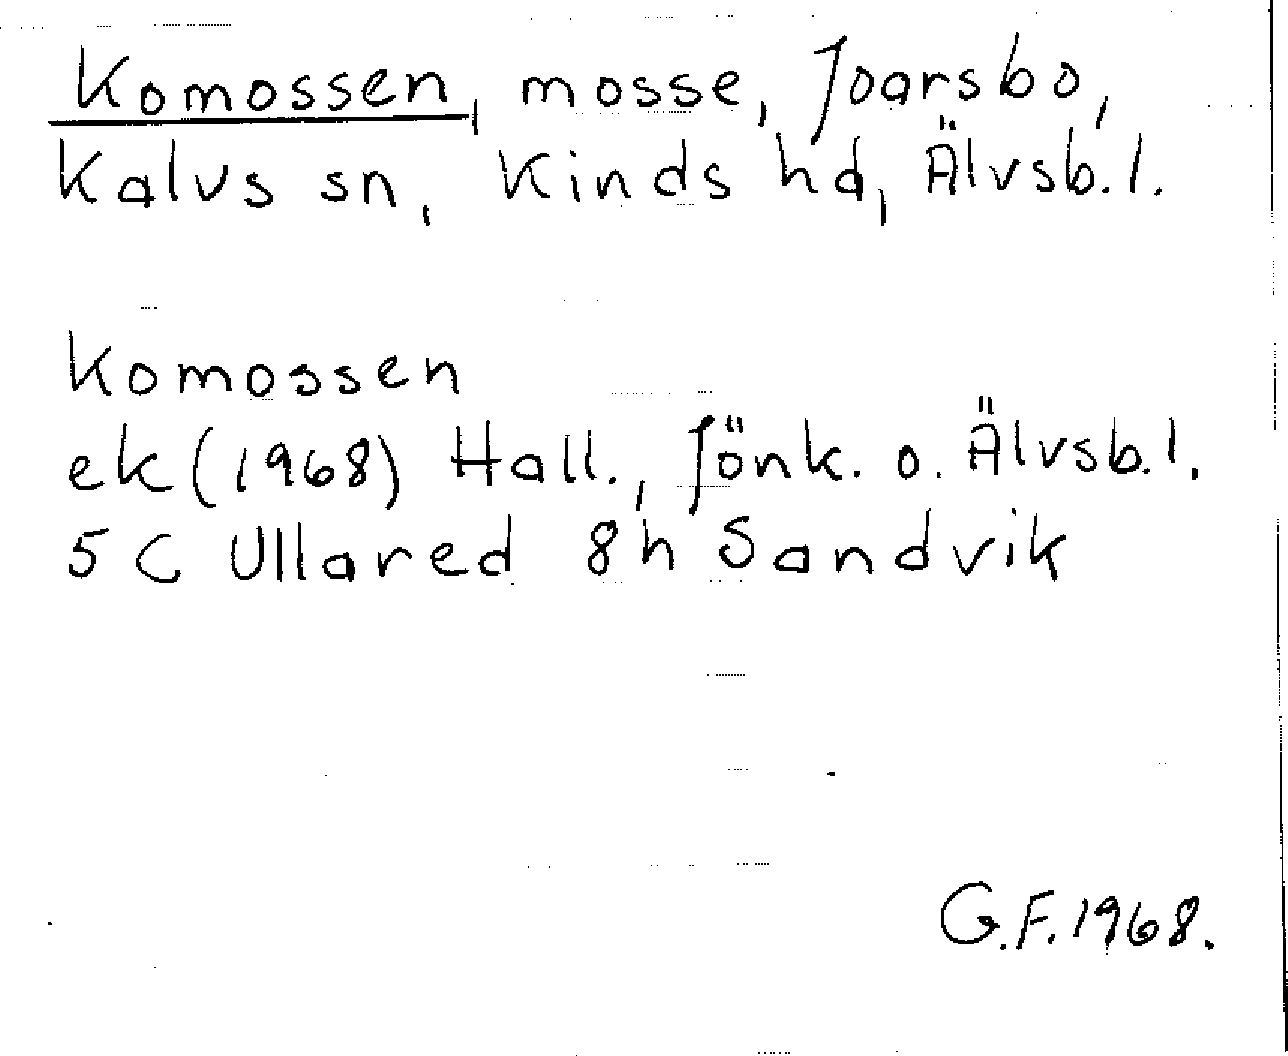 Komossen, mosse, Joarsbo,
Kalvs sn, Kinds hd, Älvsb.l.
Komossen
ek (1968) Hall., Jönk. o. Älvsb.l.
5 C Ullared 8h Sandvik
G.F. 1968.